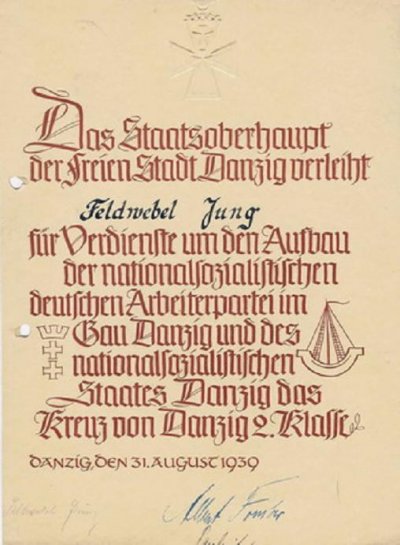 Das Staatsoberhaupt
der Freien Stadt Danzig verleiht
Feldwebel Jung
für Verdienste um den Aufbau
der nationalsozialistischen
deutschen Arbeiterpartei im
Gau Danzig und des
nationalsozialistischen
Staates Danzig das
Kreuz von Danzig 2. Klasse
DANZIG, DEN 31. AUGUST 1939
Feldwebel Jung
Albert Forster